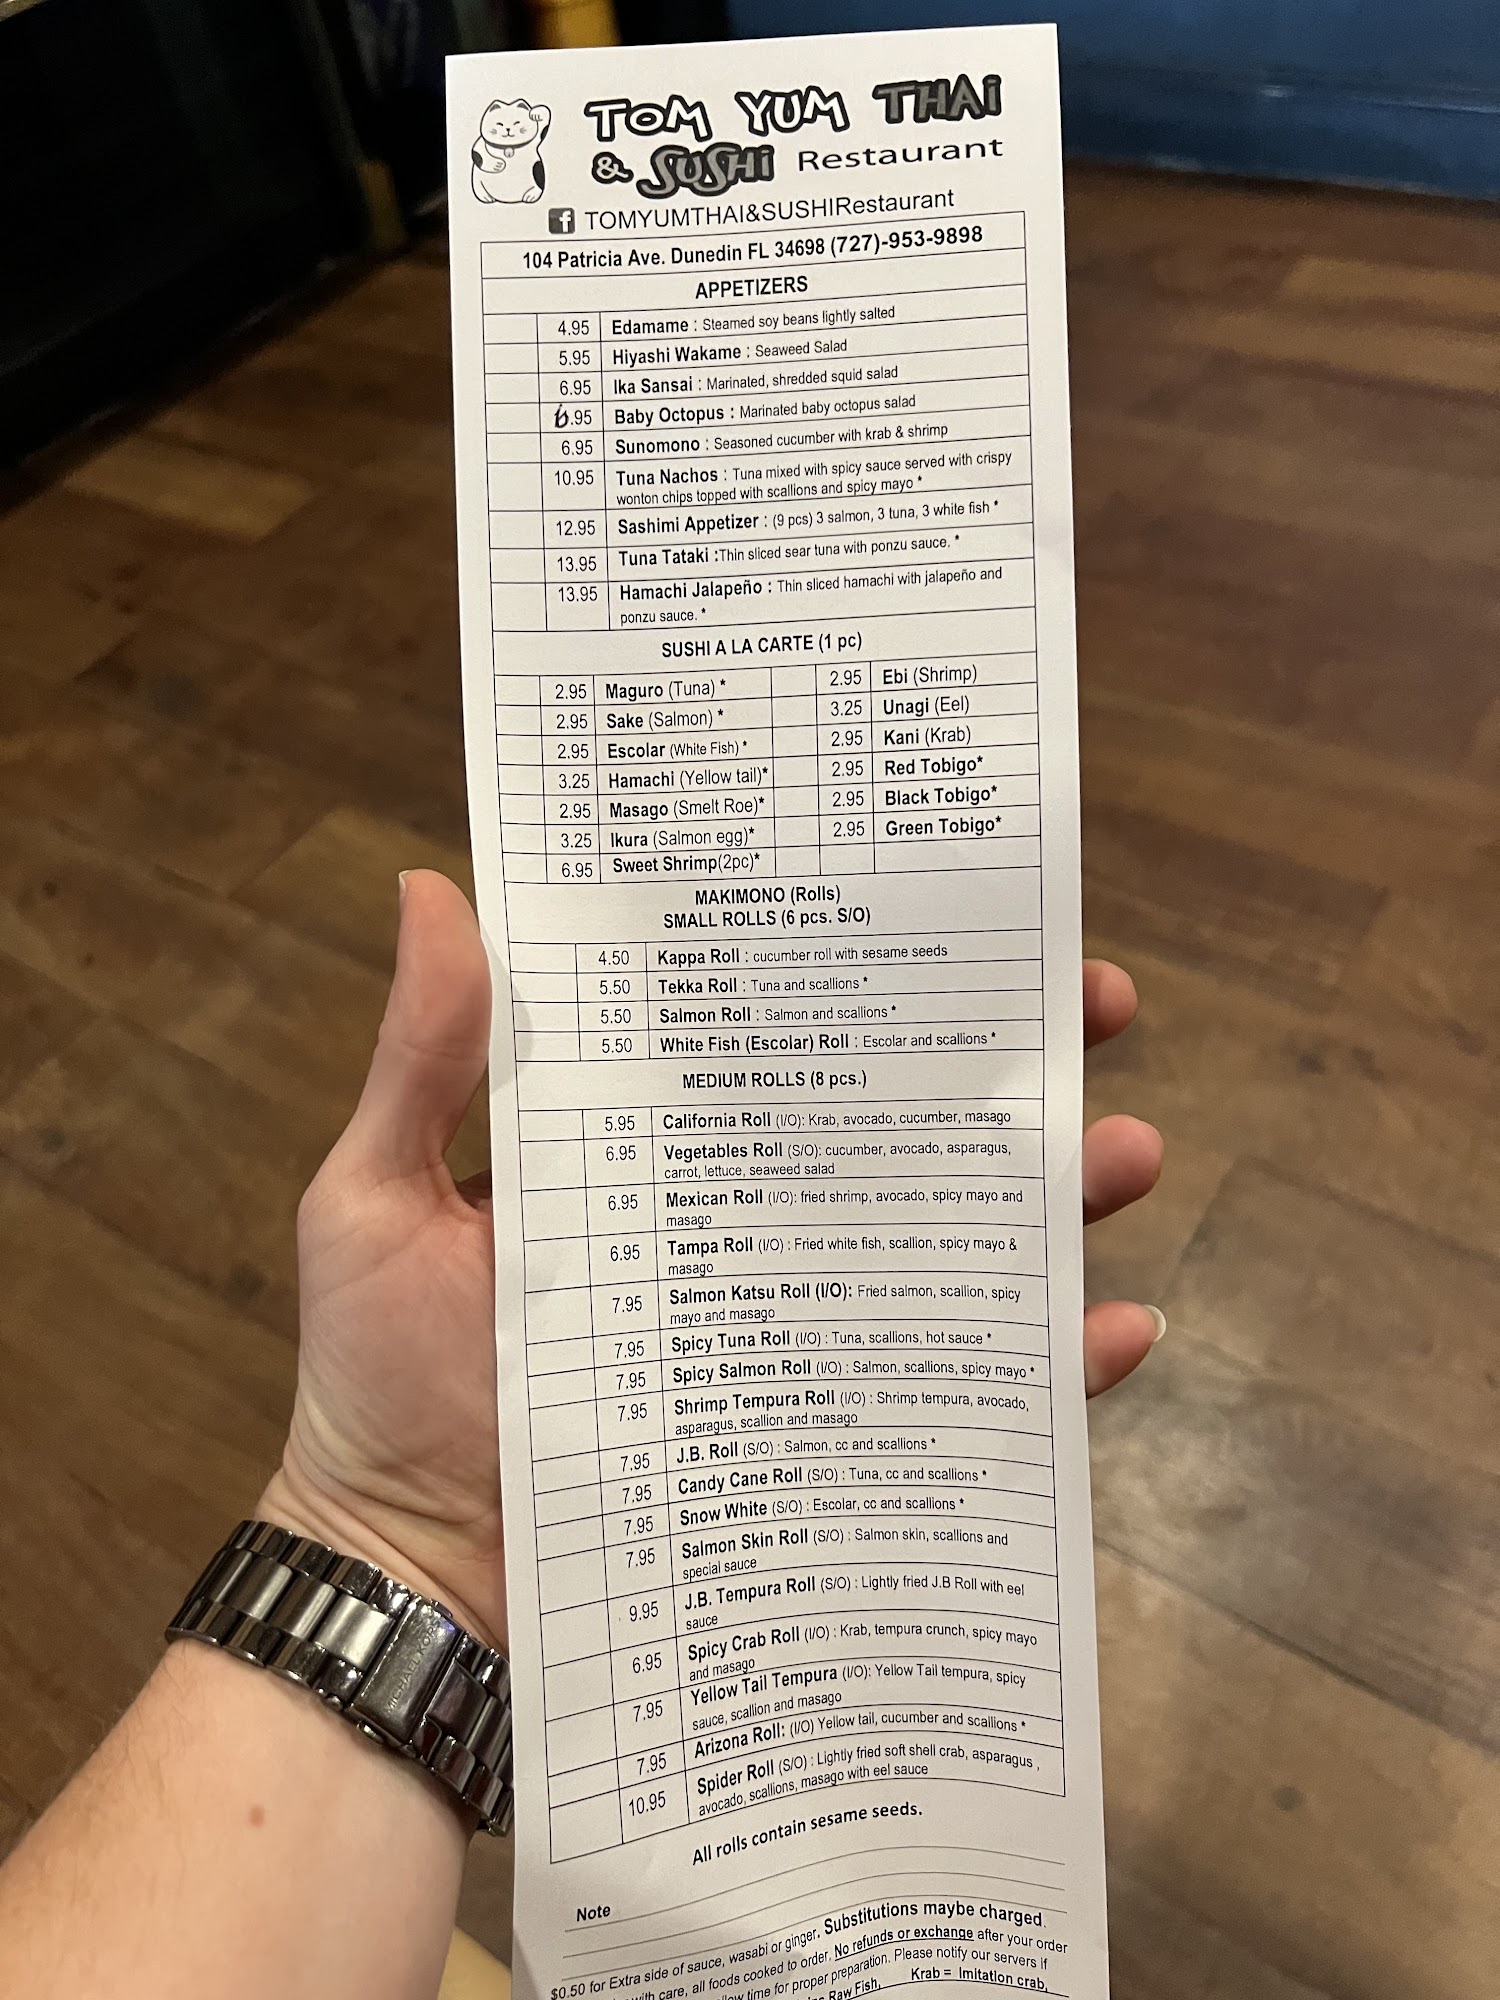 TOM YUM THAI
& SUSHI Restaurant
f TOMYUMTHAI&SUSHIRestaurant
104 Patricia Ave. Dunedin FL 34698 (727)-953-9898
APPETIZERS
4.95 Edamame : Steamed soy beans lightly salted
5.95 Hiyashi Wakame : Seaweed Salad
6.95 Ika Sansai : Marinated, shredded squid salad
6.95 Baby Octopus : Marinated baby octopus salad
6.95 Sunomono : Seasoned cucumber with krab & shrimp
10.95 Tuna Nachos : Tuna mixed with spicy sauce served with crispy
wonton chips topped with scallions and spicy mayo *
12.95 Sashimi Appetizer : (9 pcs) 3 salmon, 3 tuna, 3 white fish *
13.95 Tuna Tataki :Thin sliced sear tuna with ponzu sauce. *
13.95 Hamachi Jalapeño : Thin sliced hamachi with jalapeño and
ponzu sauce. *
SUSHI A LA CARTE (1 pc)
2.95 Maguro (Tuna) * 2.95 Ebi (Shrimp)
2.95 Sake (Salmon) * 3.25 Unagi (Eel)
2.95 Escolar (White Fish) * 2.95 Kani (Krab)
3.25 Hamachi (Yellow tail)* 2.95 Red Tobigo*
2.95 Masago (Smelt Roe)* 2.95 Black Tobigo*
3.25 Ikura (Salmon egg)* 2.95 Green Tobigo*
6.95 Sweet Shrimp(2pc)*
MAKIMONO (Rolls)
SMALL ROLLS (6 pcs. S/O)
4.50 Kappa Roll : cucumber roll with sesame seeds
5.50 Tekka Roll : Tuna and scallions *
5.50 Salmon Roll : Salmon and scallions *
5.50 White Fish (Escolar) Roll : Escolar and scallions *
MEDIUM ROLLS (8 pcs.)
5.95 California Roll (I/O): Krab, avocado, cucumber, masago
6.95 Vegetables Roll (S/O): cucumber, avocado, asparagus,
carrot, lettuce, seaweed salad
6.95 Mexican Roll (I/O): fried shrimp, avocado, spicy mayo and
masago
6.95 Tampa Roll (I/O) : Fried white fish, scallion, spicy mayo &
masago
7.95 Salmon Katsu Roll (I/O): Fried salmon, scallion, spicy
mayo and masago
7.95 Spicy Tuna Roll (I/O) : Tuna, scallions, hot sauce *
7.95 Spicy Salmon Roll (I/O) : Salmon, scallions, spicy mayo *
7.95 Shrimp Tempura Roll (I/O) : Shrimp tempura, avocado,
asparagus, scallion and masago
7.95 J.B. Roll (S/O) : Salmon, cc and scallions *
7.95 Candy Cane Roll (S/O) : Tuna, cc and scallions *
7.95 Snow White (S/O) : Escolar, cc and scallions *
7.95 Salmon Skin Roll (S/O) : Salmon skin, scallions and
special sauce
9.95 J.B. Tempura Roll (S/O) : Lightly fried J.B Roll with eel
sauce
6.95 Spicy Crab Roll (I/O) : Krab, tempura crunch, spicy mayo
and masago
7.95 Yellow Tail Tempura (I/O): Yellow Tail tempura, spicy
sauce, scallion and masago
7.95 Arizona Roll: (I/O) Yellow tail, cucumber and scallions *
10.95 Spider Roll (S/O) : Lightly fried soft shell crab, asparagus ,
avocado, scallions, masago with eel sauce
All rolls contain sesame seeds.
Note
$0.50 for Extra side of sauce, wasabi or ginger. Substitutions maybe charged.
with care, all foods cooked to order. No refunds or exchange after your order
time for proper preparation. Please notify our servers if
Raw Fish, Krab = Imitation crab,
MICHAEL KORS